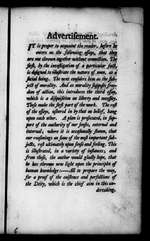 Advertisement.
IT is proper to acquaint the reader, before he
enters on the following essays, that they
are not thrown together without connection. The
first, by the investigation of a particular fact,
is designed to illustrate the nature of man, as a
social being. The next considers him as the sub-
ject of morality. And as morality supposes free-
dom of action, this introduces the third essay,
which is a disquisition on liberty and necessity.
These make the first part of the work. The rest
of the essays, ushered in by that on belief, hang
upon each other. A plan is prosecuted, in sup-
port of the authority of our senses, external and
internal; where it is occasionally shown, that
our reasonings on some of the most important sub-
jects, rest ultimately upon sense and feeling. This
is illustrated, in a variety of instances; and
from these, the author would gladly hope, that
he has thrown new light upon the principles of
human knowledge:—All to prepare the way,
for a proof of the existence and perfections of
the Deity, which is the chief aim in this un-
dertaking.